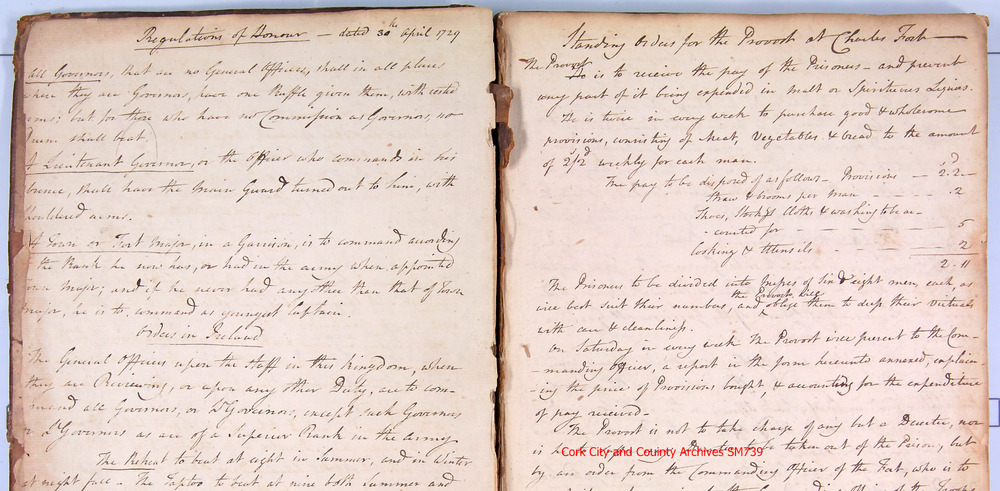 Regulations of Honour — dated 30th April 1729
All Governors, that are no General Officers, shall in all places
where they are Governors, have one Ruffle given them, with rested
arms; but for those who have no Commission as Governors, no
Drum shall beat.
A Lieutenant Governor, or the officer who commands in his
absence, shall have the Main Guard turned out to him, with
shouldered arms.
A Town or Fort Major, in a Garrison, is to command according
the Rank he now has, or had in the army when appointed
Town Major; and if he never had any other than that of Town
Major, he is to command as youngest Captain.
Orders in Ireland
The General Officers upon the Staff in this Kingdom, when
they are Reviewing, or upon any other Duty, are to com-
mand all Governors, or Lt Governors, except such Governors
or Lt Governors as are of a Superior Rank in the army
The Retreat to beat at eight in Summer, and in Winter
at night fall — The Taptoo to beat at nine both summer and
Standing Orders for the Provost at Charles Fort —
The Provost
is to receive the pay of the Prisoners — and prevent
any part of it being expended in malt or Spirituous Liquors.
He is twice in every week to purchase good & wholesome
provisions, consisting of Meat, Vegetables & bread to the amount
of 2s/2d weekly for each man.
The pay to be disposed of as follows — Provisions — 2.2 —
Straw & brooms per man — .2
Shoes, Stockgs Cloths & washing to be ac-
- counted for — 5
Cooking & Utensils — 2
2.11
The Prisoners to be divided into Messes of six & eight men, each, as
will best suit their numbers, and the Provost will oblige them to dress their victuals
with care & cleanliness.
On Saturday in every week the Provost will present to the Com-
-manding Officer, a report in the form hereunto annexed, explain-
-ing the price of Provisions bought, & accounting for the expenditure
of pay received —
The Provost is not to take charge of any but a Deserter, nor
is he to be taken out of the Prison, but
by an order from the Commanding Officer of the Fort, who is to
Cork City and County Archives SM739